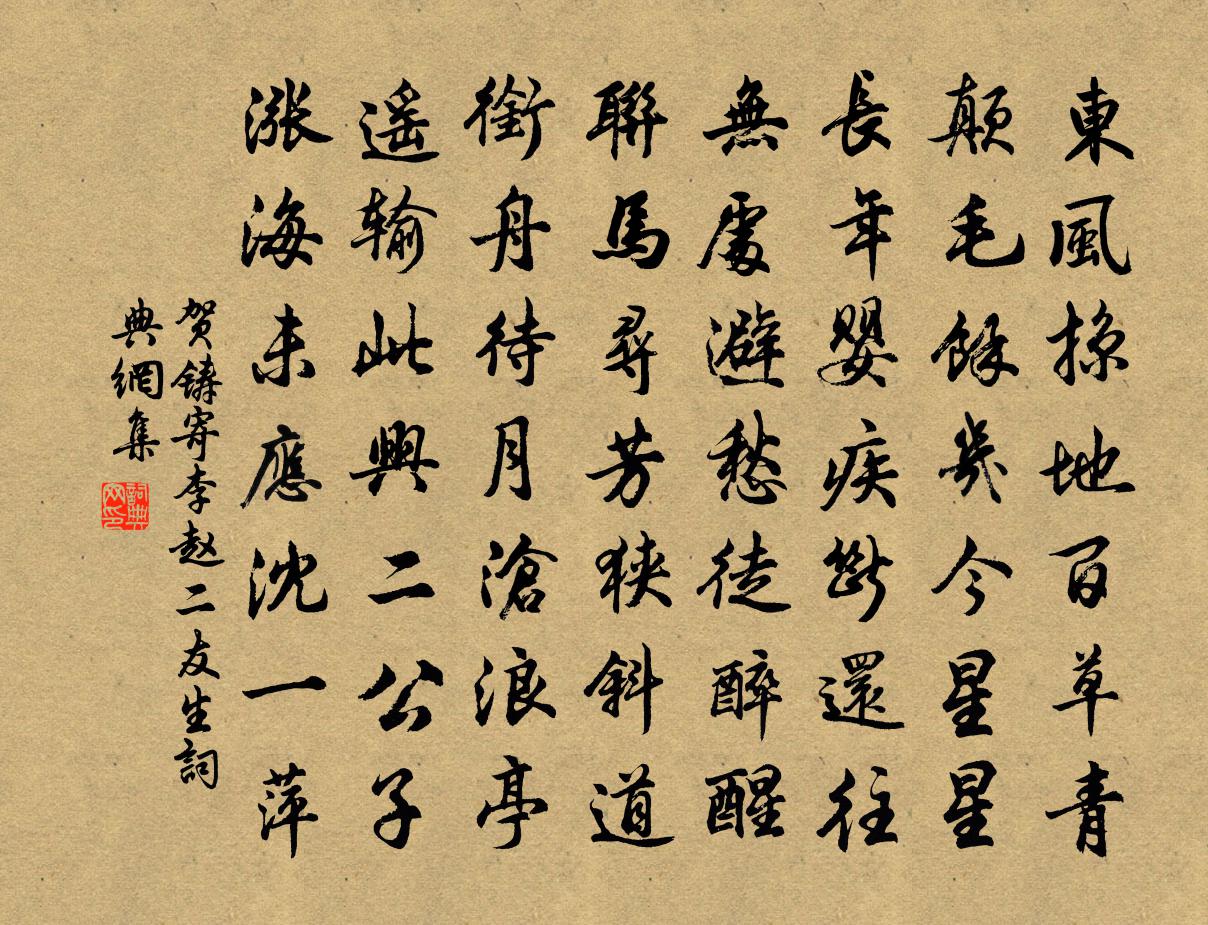 東風掠地百草青
顛毛餘幾今星星
長年嬰疾斷還往
無處避愁徒醉醒
聯馬尋芳狹斜道
銜舟待月滄浪亭
遥输此興二公子
漲海未應沈一萍
贺鑄寄李赵二友生詞
典網集
詞典网印